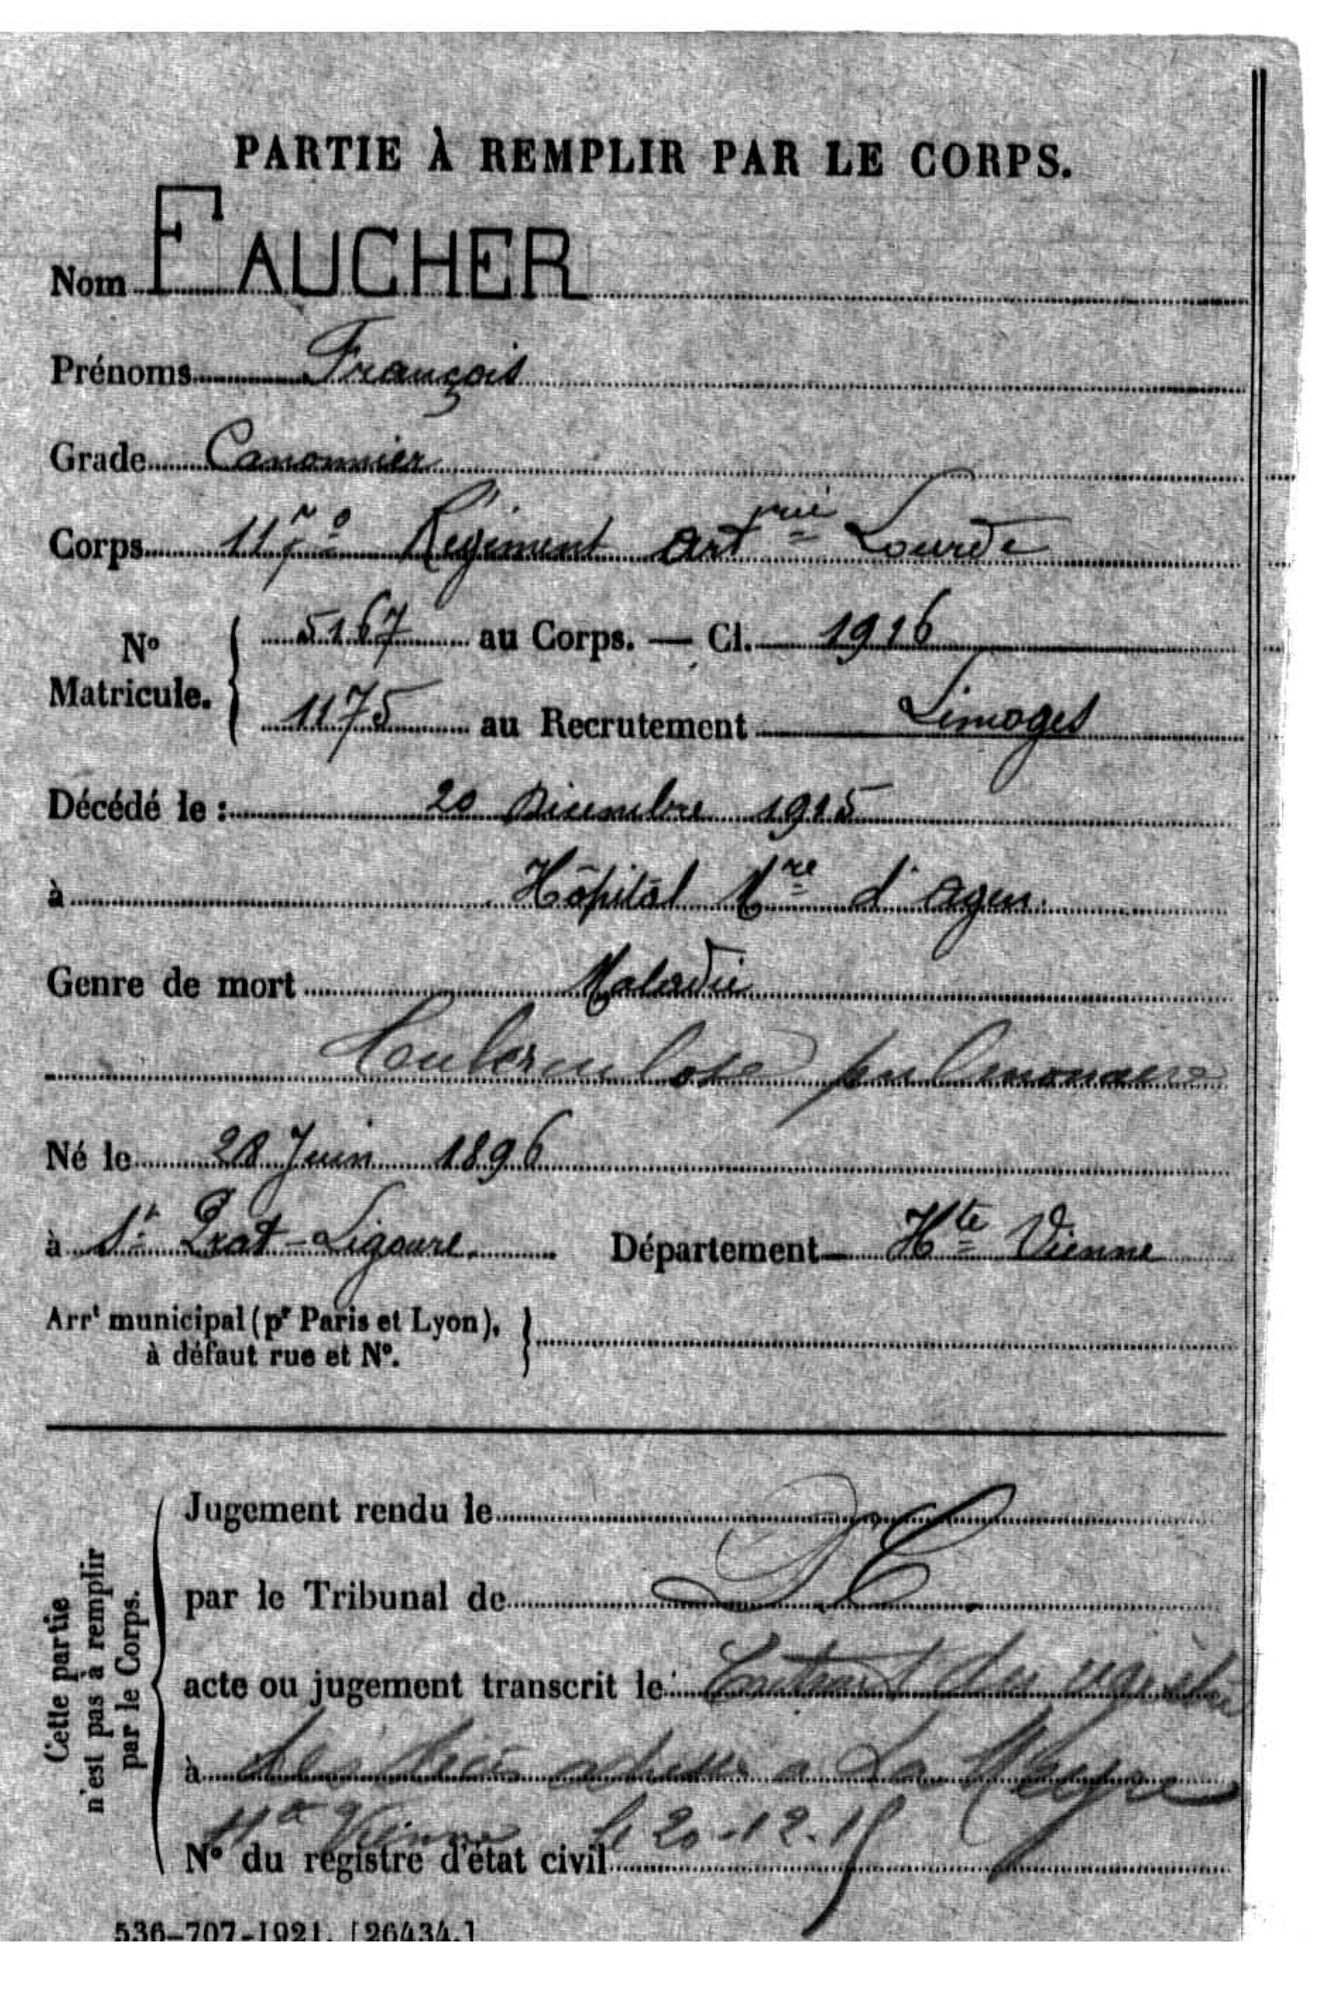 PARTIE À REMPLIR PAR LE CORPS.
Nom FAUCHER
Prénoms François
Grade Canonnier
Corps 117e Régiment Artrie Lourde
No Matricule. 5167 au Corps. — Cl. 1916
1175 au Recrutement Limoges
Décédé le : 20 Décembre 1915
à Hôpital Mre d'Agen
Genre de mort Maladie
Tuberculose pulmonaire
Né le 28 Juin 1896
à St Prat-Ligoure Département Hte Vienne
Arrt municipal (pr Paris et Lyon),
à défaut rue et No.
Cette partie n'est pas à remplir par le Corps.
Jugement rendu le
par le Tribunal de
acte ou jugement transcrit le Extrait du registre
à des décès adressé à La Meyze
Hte Vienne le 20-12-15
No du registre d'état civil
536-707-1921. [26434.]